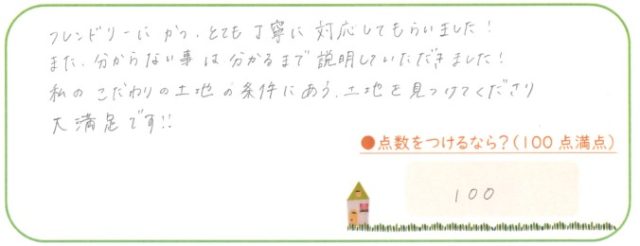 フレンドリーに かつ、とても丁寧に対応してもらいました！
また、分からない事は分かるまで説明していただきました！
私のこだわりの土地の条件にあう、土地を見つけてくださり
大満足です!!
●点数をつけるなら？(100点満点)
100